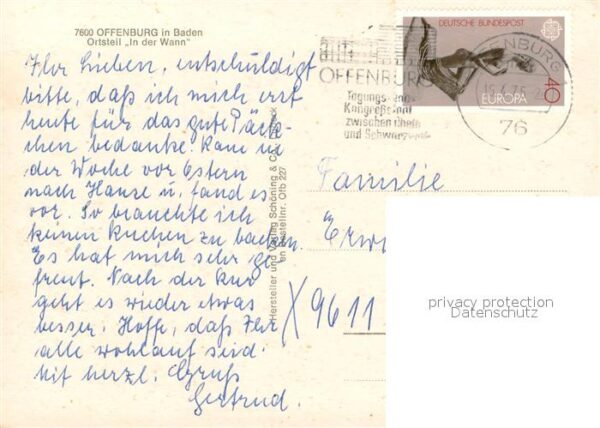 7600 OFFENBURG in Baden
Ortsteil „In der Wann"
Ihr Lieben, entschuldigt
bitte, daß ich mich erst
heute für das gute Päck-
chen bedanke. Kam in
der Woche vor Ostern
nach Hause u. fand es
vor. So brauchte ich
keinen Kuchen zu backen.
Es hat mich sehr ge-
freut. Nach der Kur
geht es wieder etwas
besser. Hoffe, daß Ihr
alle wohlauf seid.
Mit herzl. Gruß
Gertrud.
Hersteller und Verlag Schöning & Co
Bestellnr. Ofb 227
OFFENBURG
Tagungs- und
Kongreßstadt
zwischen Rhein
und Schwarzwald
DEUTSCHE BUNDESPOST
EUROPA
40
76
Familie
Erwi
X 9611
privacy protection
Datenschutz